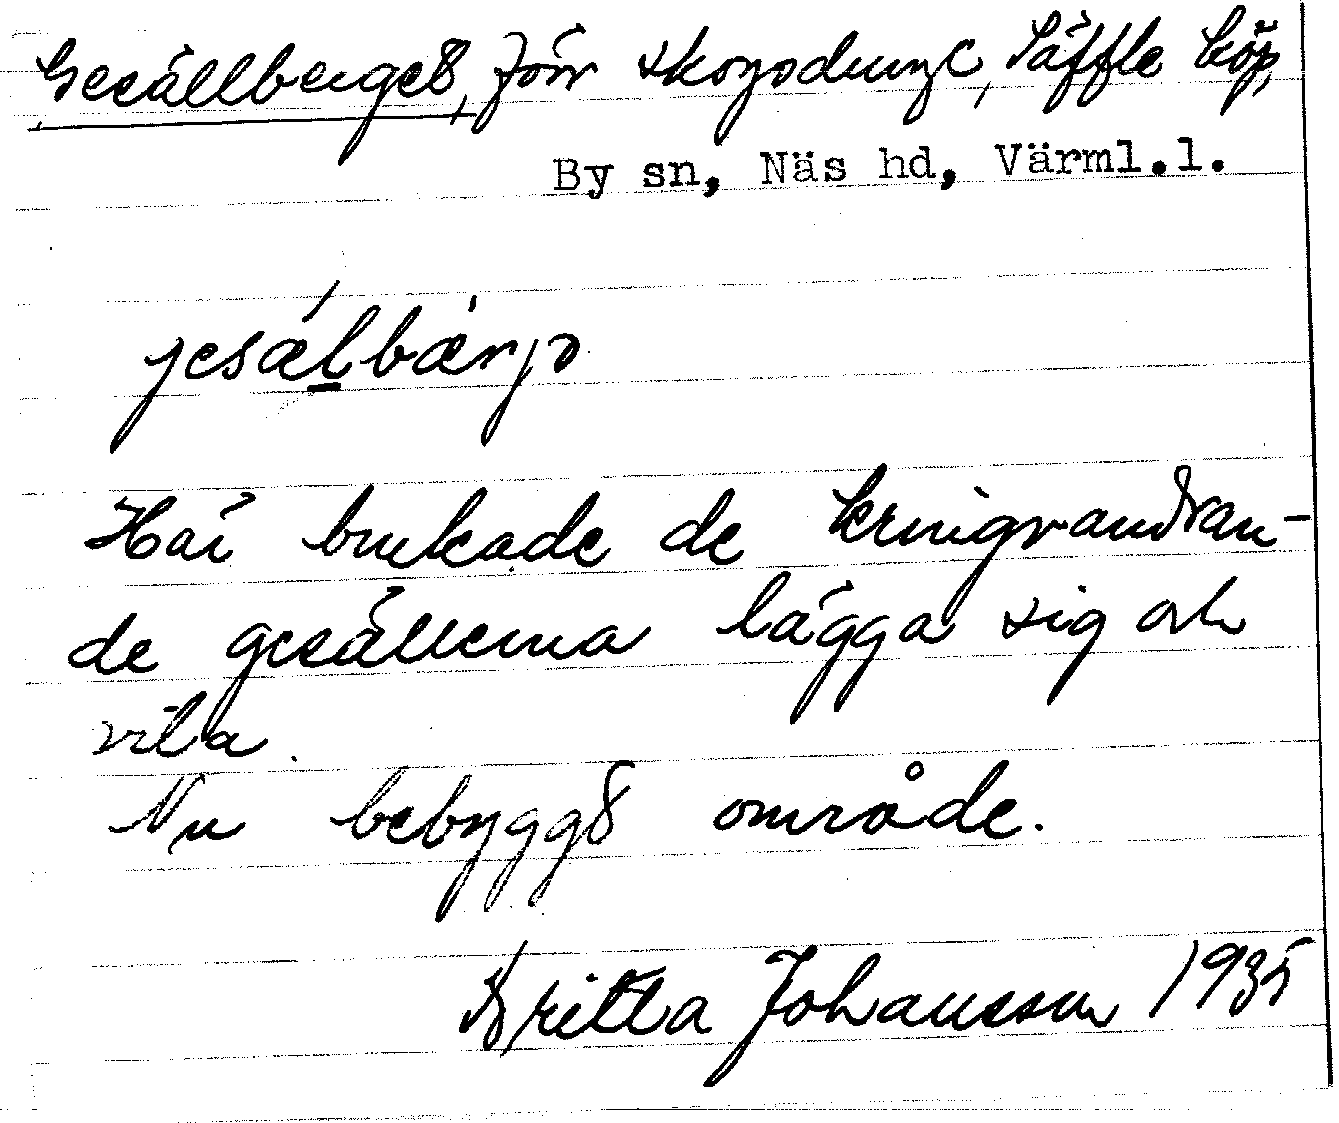 Gesällberget, förr skogsdunge, Säffle köp,
By sn, Näs hd, Värml.l.
jesälbärjə
Här brukade de kringvandran-
de gesällerna lägga sig och
vila.
Nu bebyggt område.
Britta Johansson 1935